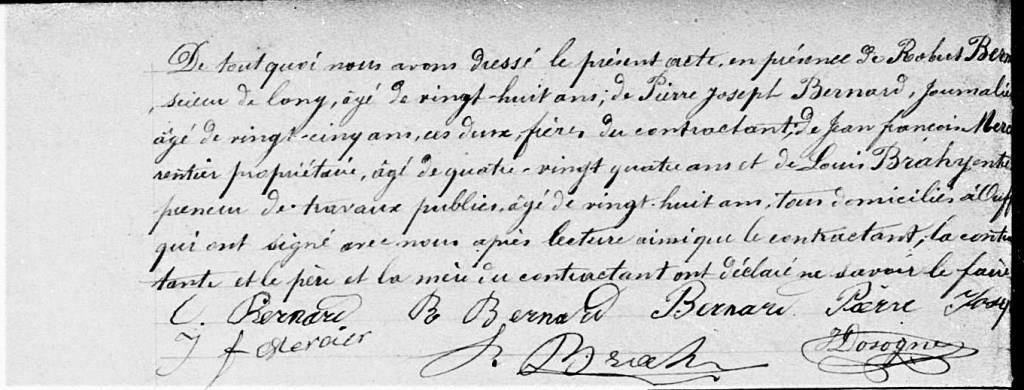 De tout quoi nous avons dressé le présent acte, en présence de Robert Bern
, scieur de long, âgé de vingt-huit ans; de Pierre Joseph Bernard, Journali
âgé de vingt-cinq ans, ces deux, frères du contractant; de Jean françois Merc
rentier propriétaire, âgé de quatre-vingt quatre ans et de Louis Brahy entre
preneur de travaux publics, âgé de vingt-huit ans, tous domiciliés à Ouff
qui ont signé avec nous après lecture ainsi que le contractant; la contr
tante et le père et la mère du contractant ont déclaré ne savoir le faire
C. Bernard R Bernard Bernard Pierre Josep
J f Mercier L. Brahy HDosogne